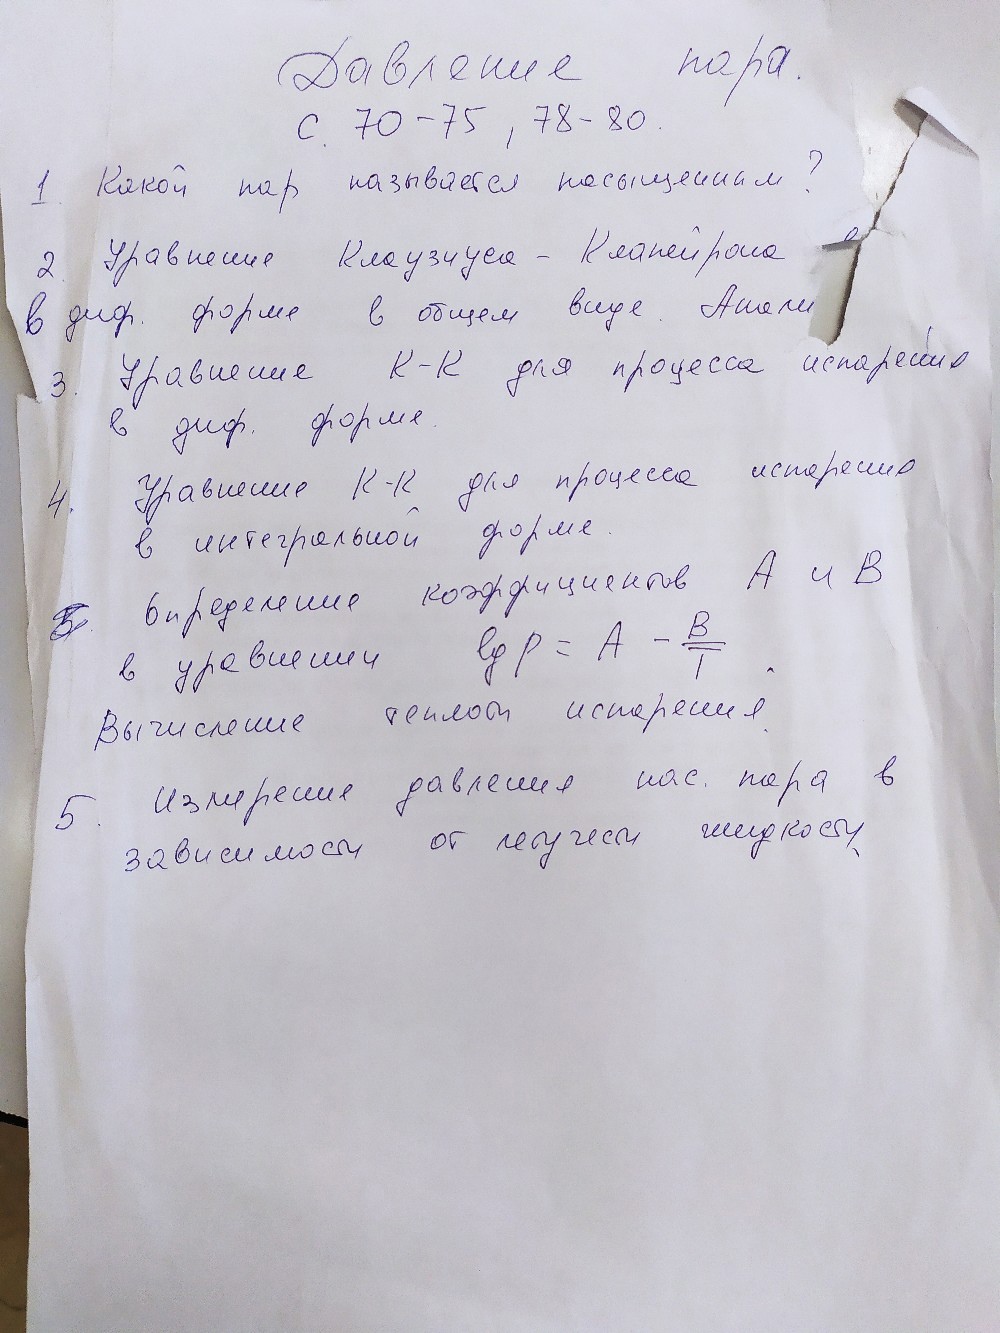 Давление пара.
с. 70-75, 78-80.
1. Какой пар называется насыщенным?
2. Уравнение Клаузиуса - Клапейрона
в диф. форме в общем виде. Анали
3. Уравнение К-К для процесса испарения
в диф. форме.
4. Уравнение К-К для процесса испарения
в интегральной форме.
Определение коэффициентов А и В
в уравнении lg P = A - B/T.
Вычисление теплоты испарения.
5. Измерение давления нас. пара в
зависимости от летучести жидкости.